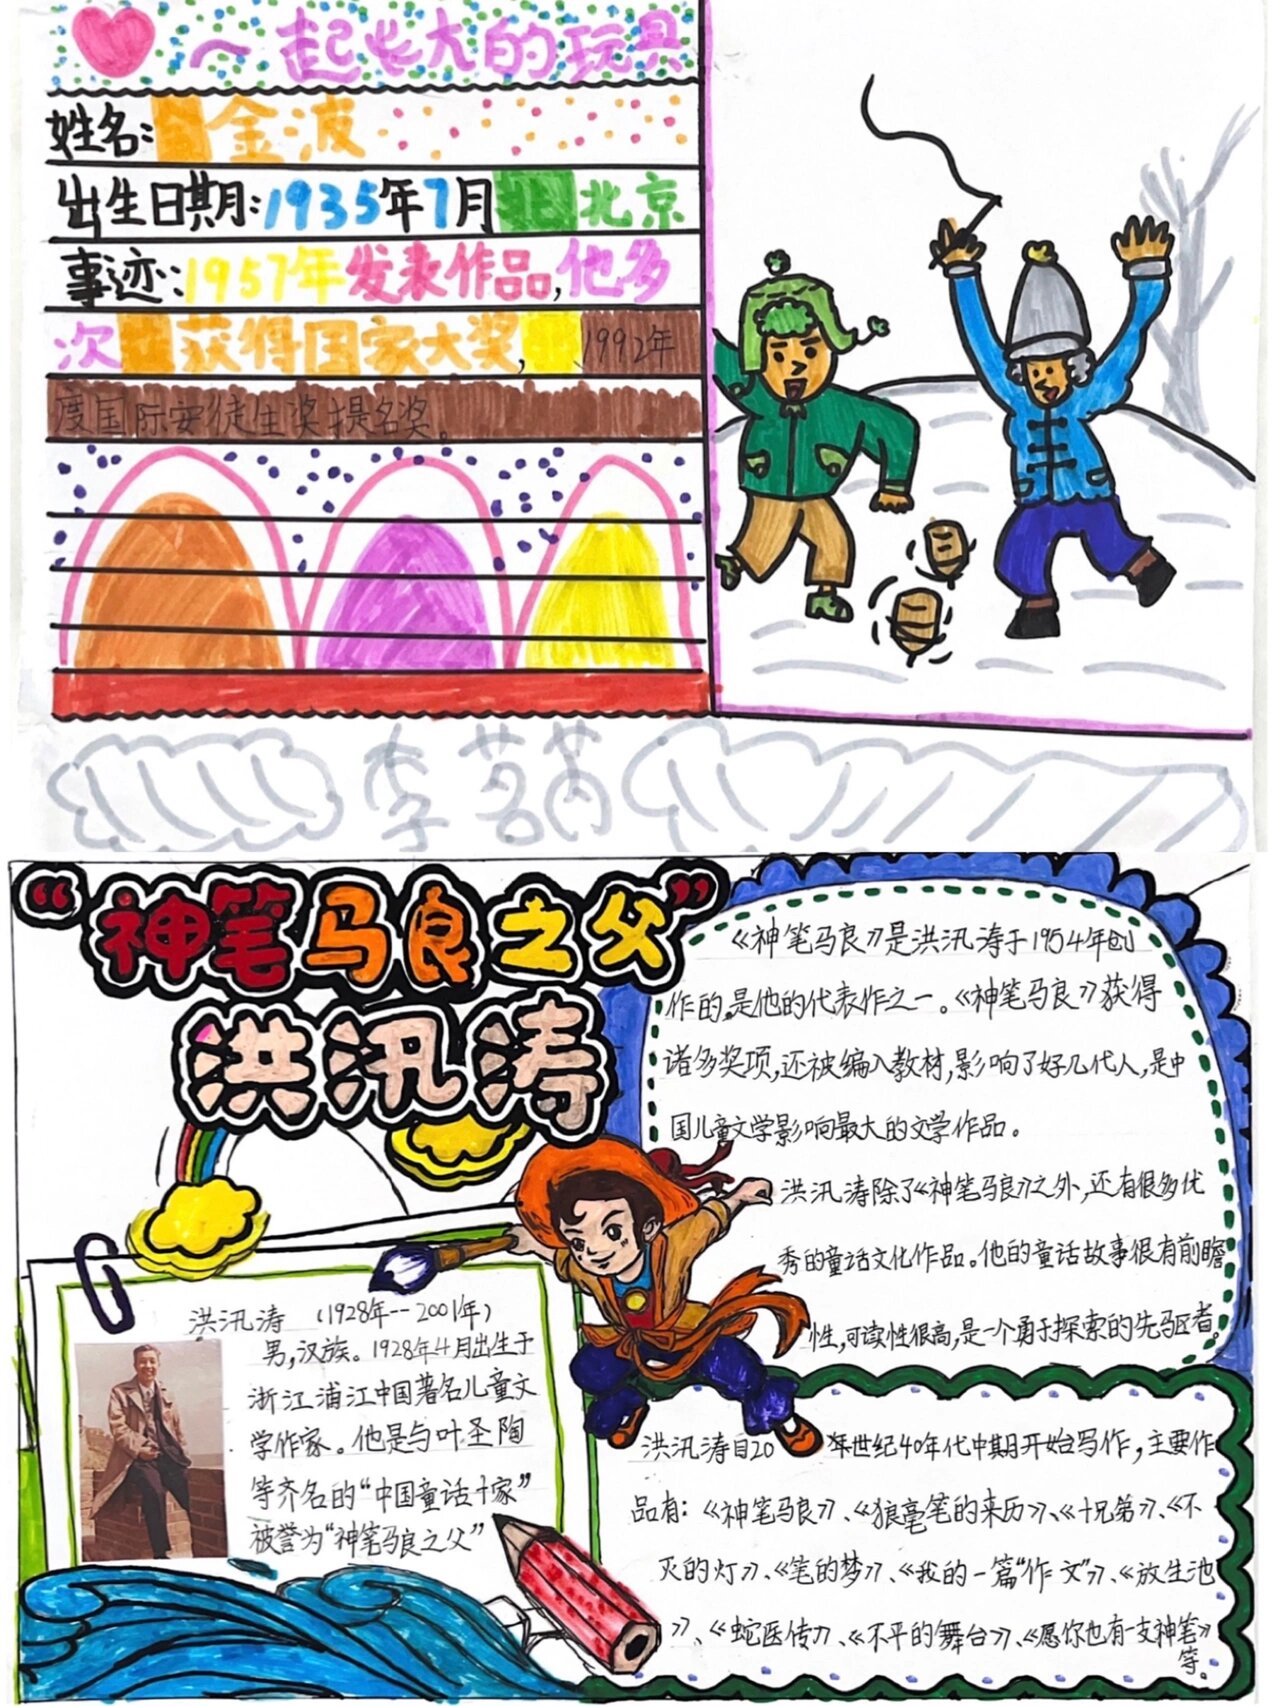 一起长大的玩具
姓名:金波
出生日期:1935年7月北京
事迹:1957年发表作品,他多
次获得国家大奖,1992年
度国际安徒生奖提名奖。
李茗芮
“神笔马良之父”
洪汛涛
《神笔马良》是洪汛涛于1954年创
作的,是他的代表作之一。《神笔马良》获得
诸多奖项,还被编入教材,影响了好几代人,是中
国儿童文学影响最大的文学作品。
洪汛涛除了《神笔马良》之外,还有很多优
秀的童话文化作品。他的童话故事很有前瞻
性,可读性很高,是一个勇于探索的先驱者。
洪汛涛 (1928年--2001年)
男,汉族。1928年4月出生于
浙江浦江中国著名儿童文
学作家。他是与叶圣陶
等齐名的“中国童话十家”
被誉为“神笔马良之父”
洪汛涛自20年世纪40年代中期开始写作,主要作
品有:《神笔马良》、《狼毫笔的来历》、《十兄弟》、《不
灭的灯》、《笔的梦》、《我的一篇“作文”》、《放生池
》、《蛇医传》、《不平的舞台》、《愿你也有一支神笔》
等。